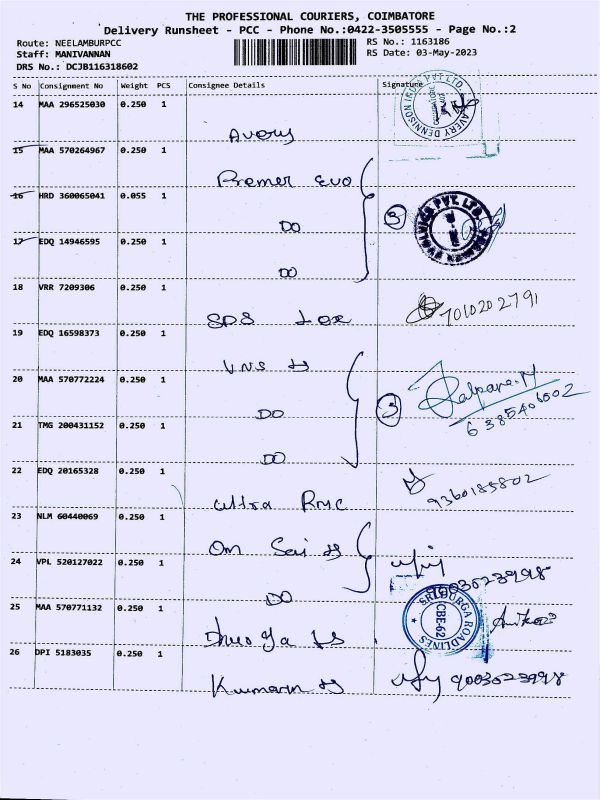 THE PROFESSIONAL COURIERS, COIMBATORE
Delivery Runsheet - PCC - Phone No.:0422-3505555 - Page No.:2
Route: NEELAMBURPCC
RS No.: 1163186
Staff: MANIVANNAN
RS Date: 03-May-2023
DRS No.: DCJB116318602
S No Consignment No Weight PCS Consignee Details Signature
14 MAA 296525030 0.250 1
Avery
15 MAA 570264967 0.250 1
Premer Evo
16 HRD 360065041 0.055 1
DO
3
17 EDQ 14946595 0.250 1
DO
18 VRR 7209306 0.250 1
7010202791
SDS
19 EDQ 16598373 0.250 1
VNS
20 MAA 570772224 0.250 1
DO
3
6385406502
21 TMG 200431152 0.250 1
DO
22 EDQ 20165328 0.250 1
9360185802
Ultra RMC
23 NLM 60440069 0.250 1
Om Sai
24 VPL 520127022 0.250 1
DO
9003623998
25 MAA 570771132 0.250 1
SRI DURGA ROADLINES
CBE-62
26 DPI 5183035 0.250 1
Kumaran
9003623998